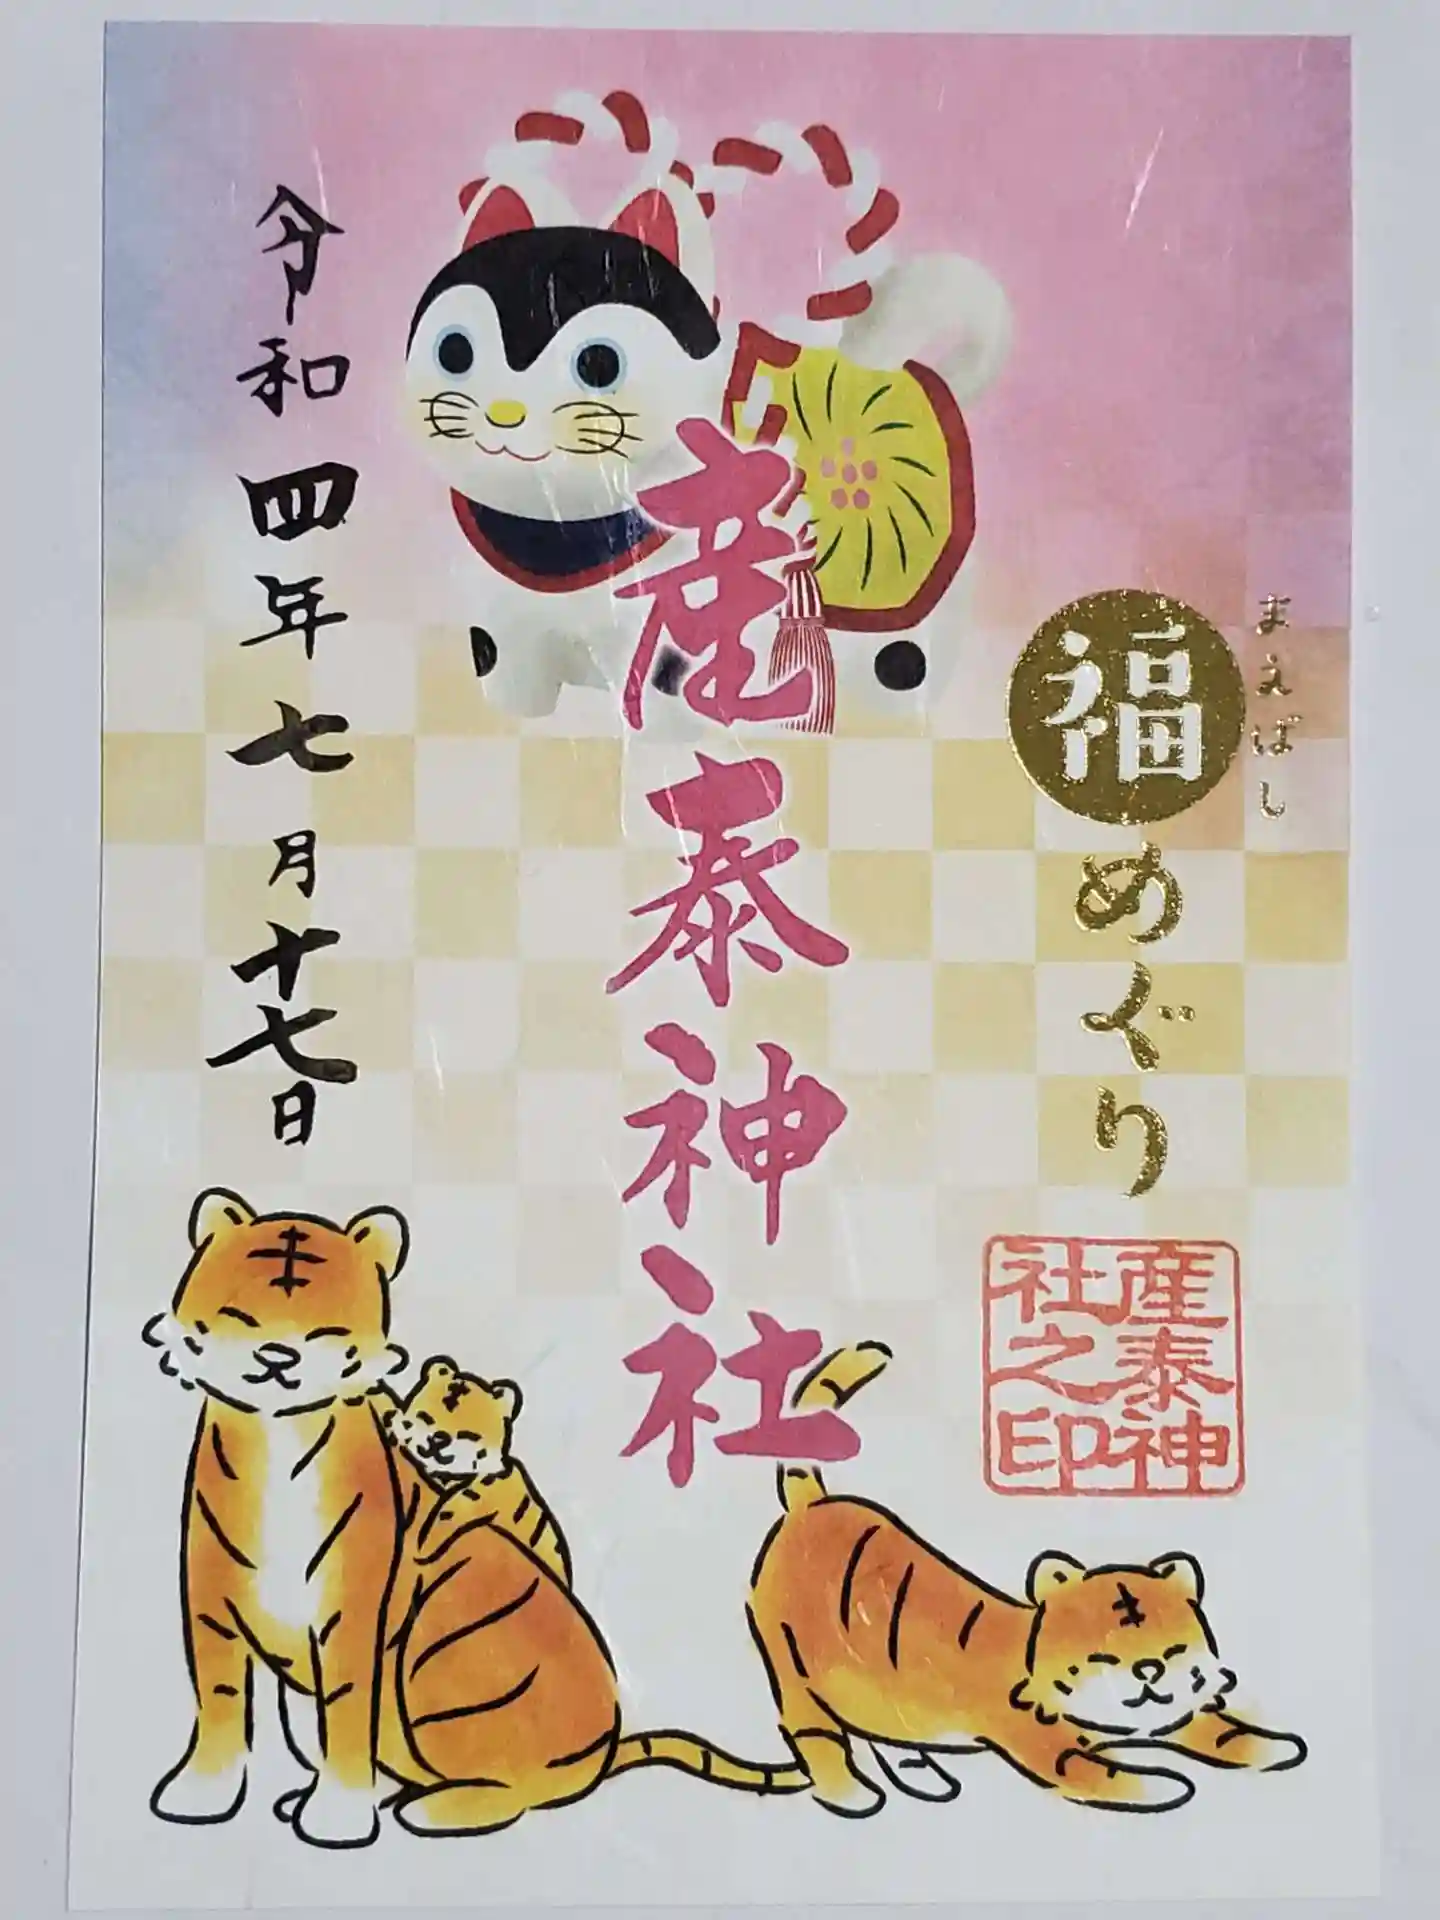 まえばし
福めぐり
産泰神
社之印
産泰神社
令和四年七月十七日